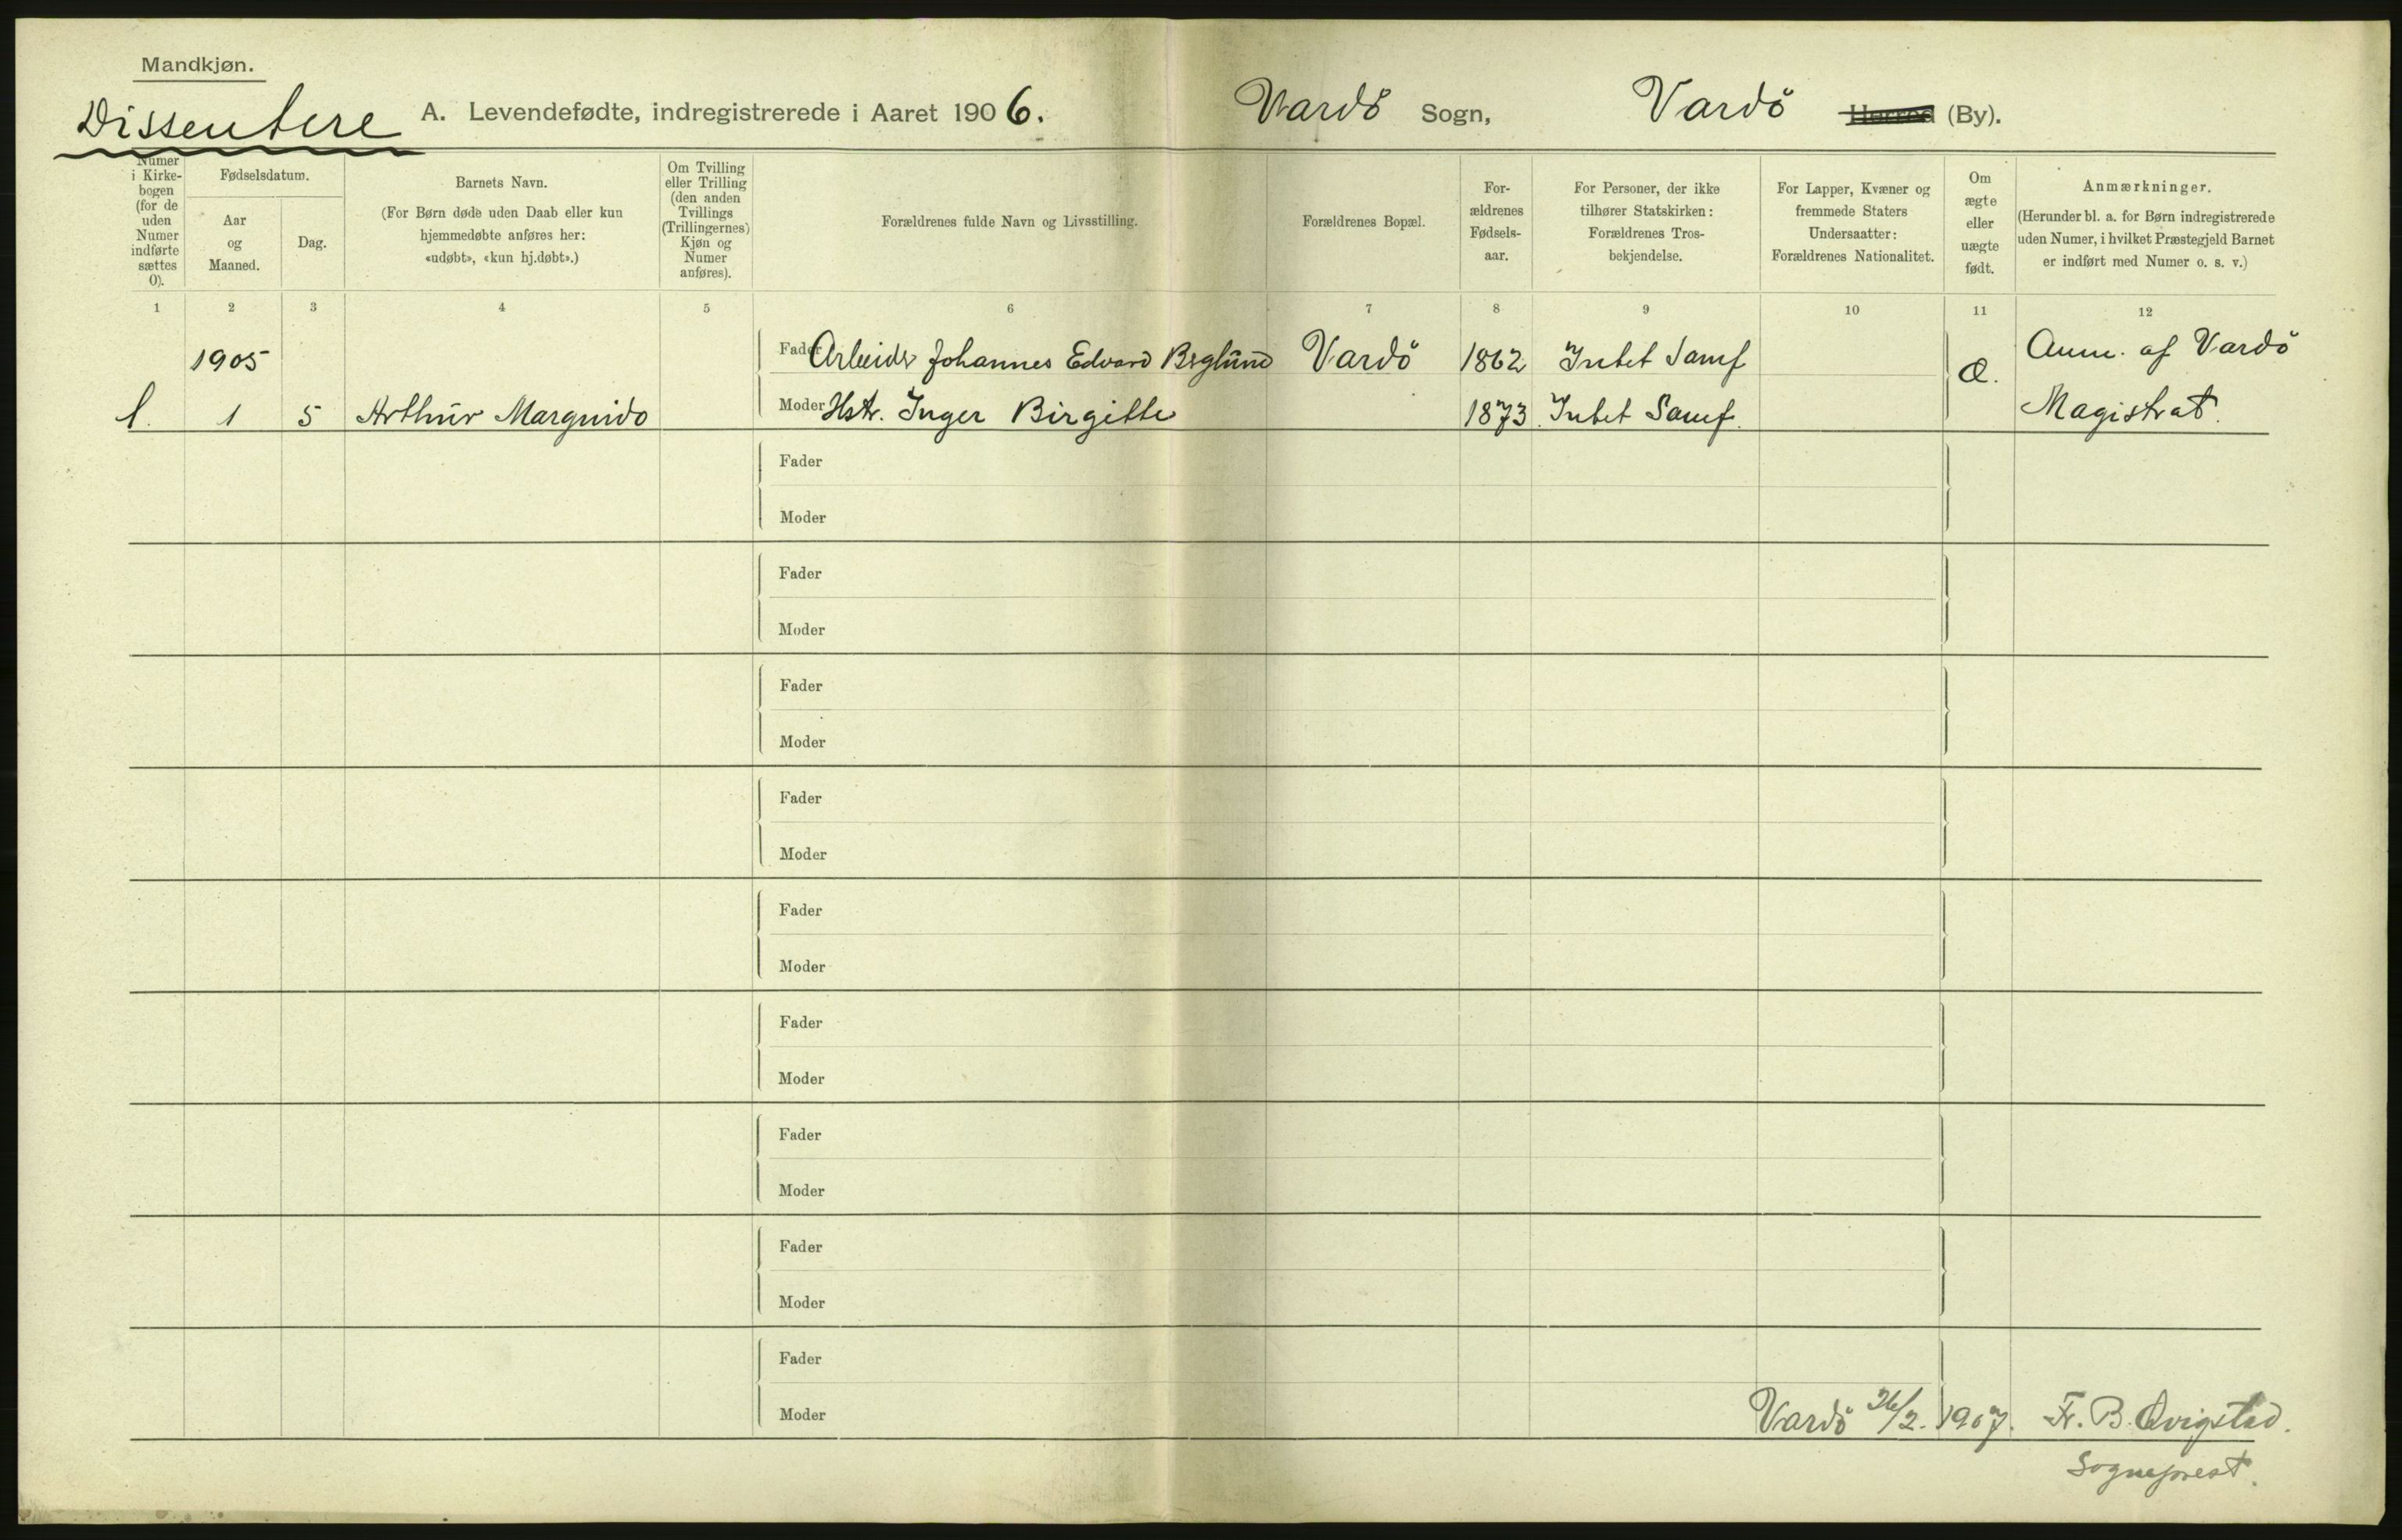 Mandkjøn.
Dissentere A. Levendefødte, indregistrerede i Aaret 1906. Vardö Sogn, Vardö Herred (By).
Numer i Kirke-bogen (for de uden Numer indførte sættes 0).
Fødselsdatum.
Aar og Maaned.
Dag.
Barnets Navn.
(For Børn døde uden Daab eller kun
hjemmedøbte anføres her:
«udøbt», «kun hj.døbt».)
Om Tvilling
eller Trilling
(den anden
Tvillings
(Trillingernes)
Kjøn og
Numer
anføres).
Forældrenes fulde Navn og Livsstilling.
Forældrenes Bopæl.
For-
ældrenes
Fødsels-
aar.
For Personer, der ikke
tilhører Statskirken:
Forældrenes Tros-
bekjendelse.
For Lapper, Kvæner og
fremmede Staters
Undersaatter:
Forældrenes Nationalitet.
Om
ægte
eller
uægte
født.
Anmærkninger.
(Herunder bl. a. for Børn indregistrerede
uden Numer, i hvilket Præstegjeld Barnet
er indført med Numer o. s. v.)
1 2 3 4 5 6 7 8 9 10 11 12
1905 Fader Arbeider Johannes Edvard Berglund Vardö 1862 Intet Samf Æ. Anm. af Vardö
1. 1 5 Arthur Marguido Moder Hstr. Inger Birgitte 1873. Intet Samf. Magistrat.
Fader
Moder
Fader
Moder
Fader
Moder
Fader
Moder
Fader
Moder
Fader
Moder
Fader
Moder
Fader
Moder
Fader
Moder Vardö 26/2. 1907. Fr. B. Qvigstad.
Sogneprest.